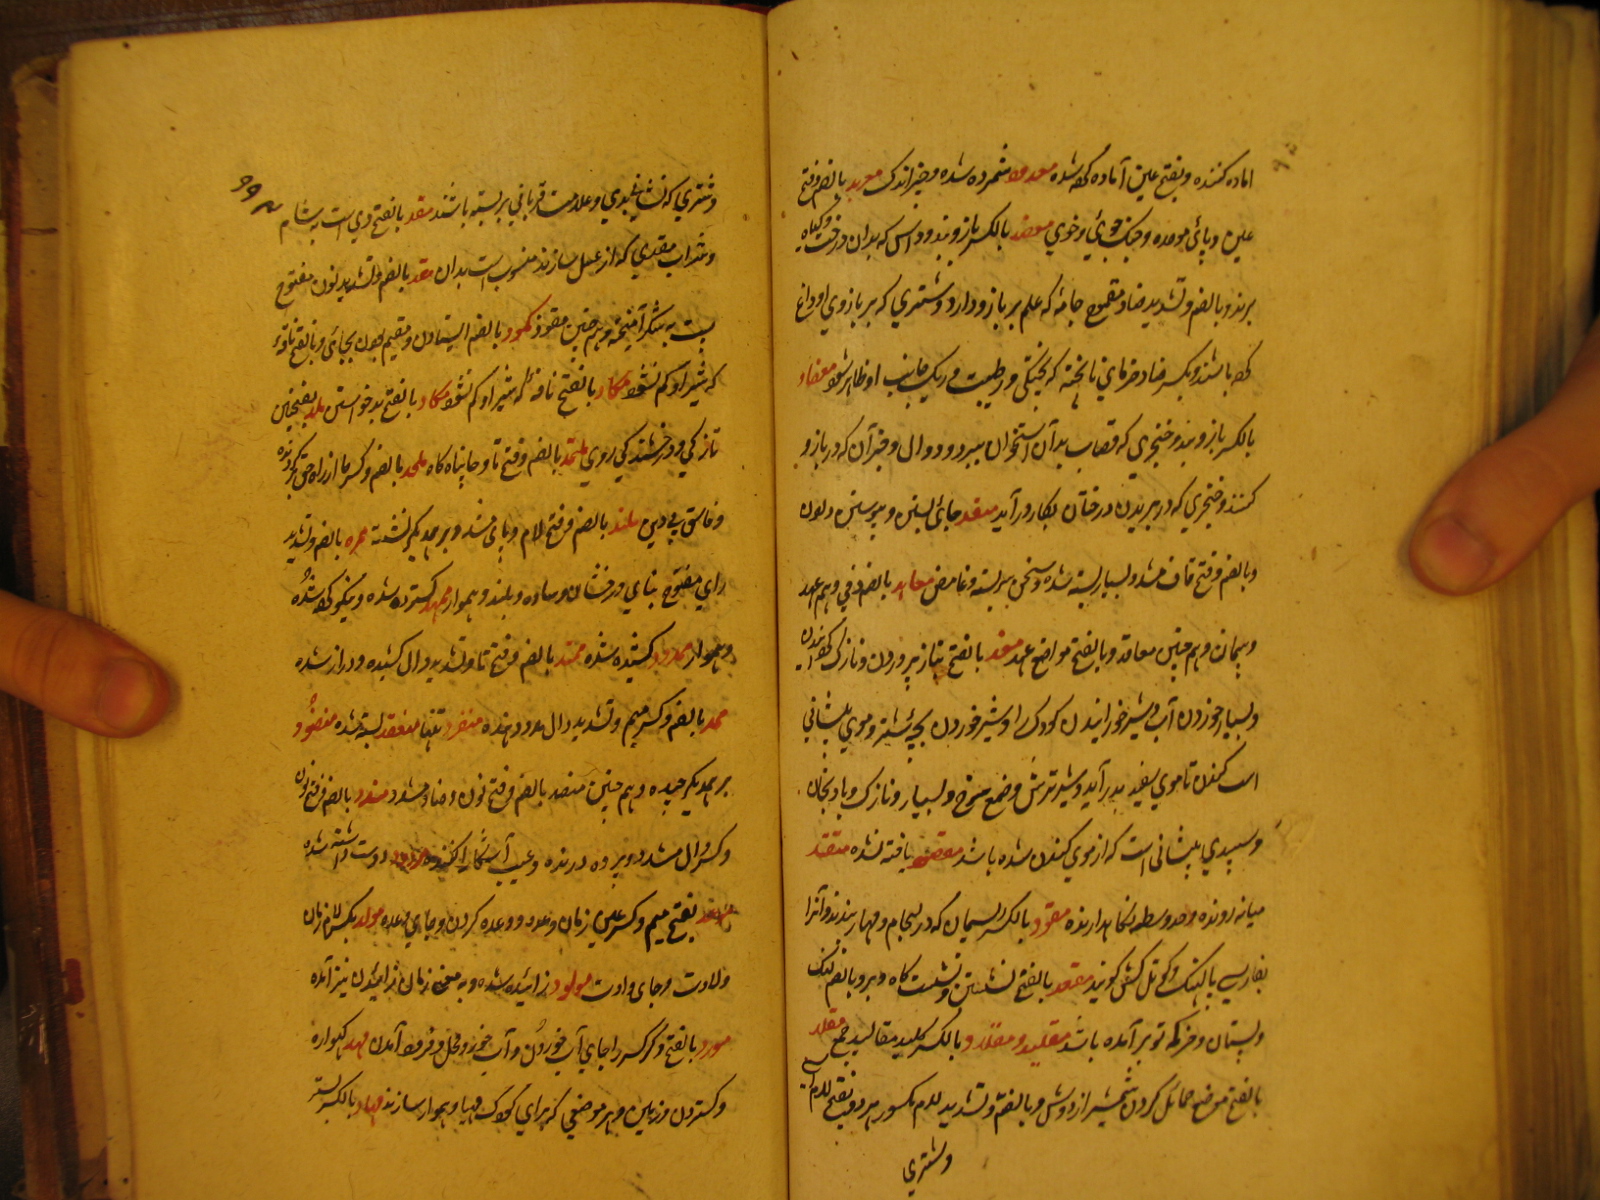 اماده کننده و بفتح عین آماده کرده شده معدود شمرده شده و چیز اندک معربد بالضم و فتح
عین و بای موحده و جنک جوئی و خوی معضد بالکسر بازوبند و داس که بدان درخت و گیاه
برند و بالضم و تشدید ضاد مفتوح جامه که علم بر بازو دارد و شتری که بر بازوی او داغ
کرده باشند و بکسر ضاد خرمای ناپخته که پختگی و رطبیت در یک جانب او ظاهر شود معضاد
بالکسر بازوبند و خنجری که قصاب بدان استخوان ببرد و دوال و جز آن که در بازو
کنند و خنجری که در بریدن درختان بکار در آید معقد جای بستن و پیوستن
وبالضم و فتح قاف مشدد بسیار بسته شده و سخن سربسته و غامض معاهد بالضم ذمی و هم عهد
و پیمان و هم چنین معاقد و بالفتح مواضع عهد مغد بالفتح بناز پرودن و نازک
و بسیار خوردن آب و شیر خورانیدن کودک را و شیر خوردن بچه شتر و موی پیشانی
اسب کندن تا موی سفید بدر آید و شیر ترش و ضمغ سرخ و بسیار و نازک و بادنجان
و سپیدی پیشانی است که از موی کندن شده باشد مفقود یافته نشده مقتصد
میانه رونده و حد وسط نکاهدارنده مقود بالکسر ریسمان که در لجام و مهار بندند و آنرا
بفارسی پالهنک و کوتل کش کویند مقعد بالفتح نشستن و نشست کاه و دبر و بالضم لنک
و پستان و خر که تو بر آمده باشد مقلید و مقلاد بالکسر کلید مقالید جمع مقلد
بالفتح موضع حمایل کردن شمشیر از دوش و بالضم و تشدید لام مکسور و بفتح لام
و شتری
۹۹
و شتری که و علامت قربانی بر بسته باشند مقد بالفتح دهی است به شام
و شراب مقدی که از عسل سازند منسوب است بدان مقند بالضم و تشدید نون مفتوح
پست به شکر آمیخته و هم چنین مقنود مکود بالضم ایستادن و مقیم بودن بجائی و بالفتح ناقه
که شیر او کم نشود مکاد بالفتح ناقه که شیر او کم نشود مکاد بالفتح بدخواستن ملد بفتحتین
تازکی و درخشندکی روی ملتحد بالضم و فتح تا و حا پناه کاه ملحد بالضم و کسر حا از راه حق
و فاسق بی دین ملبد بالضم و فتح لام و بای مشدد بر همدیکر نشسته ممرد بالضم و تشدید
رای مفتوح بنای درخشان و ساده و بلند و هموار ممهد کسترده شده و نیکو کرده شده
و هموار ممدود کشیده شده ممتد بالضم و فتح تا و تشدید دال کشیده و دراز شده
ممد بالضم و کسر میم و تشدید دال مدد دهنده منفرد تنها منعقد بسته شده منضود
بر همدیکر چیده و هم چنین منضد بالضم و فتح نون و ضاد مشدد مندد بالضم و فتح نون
و کسر دال مشدد پرده درنده و عیب آشکارا کننده مودود دوست داشته شده
موعد بفتح میم و کسر عین زمان وعده و وعده کردن و جای وعده مولد بکسر لام زمان
ولادت و جای ولادت مولود زائیده شده و به معنی زمان زائیدن نیز آمده
مورد بالفتح و کسر را جای آب خوردن و محل فرود آمدن مهد کهواره
و کستردن و زمین و هر موضعی که برای کودک مهیا و هموار سازند مهاد بالکسر بستر